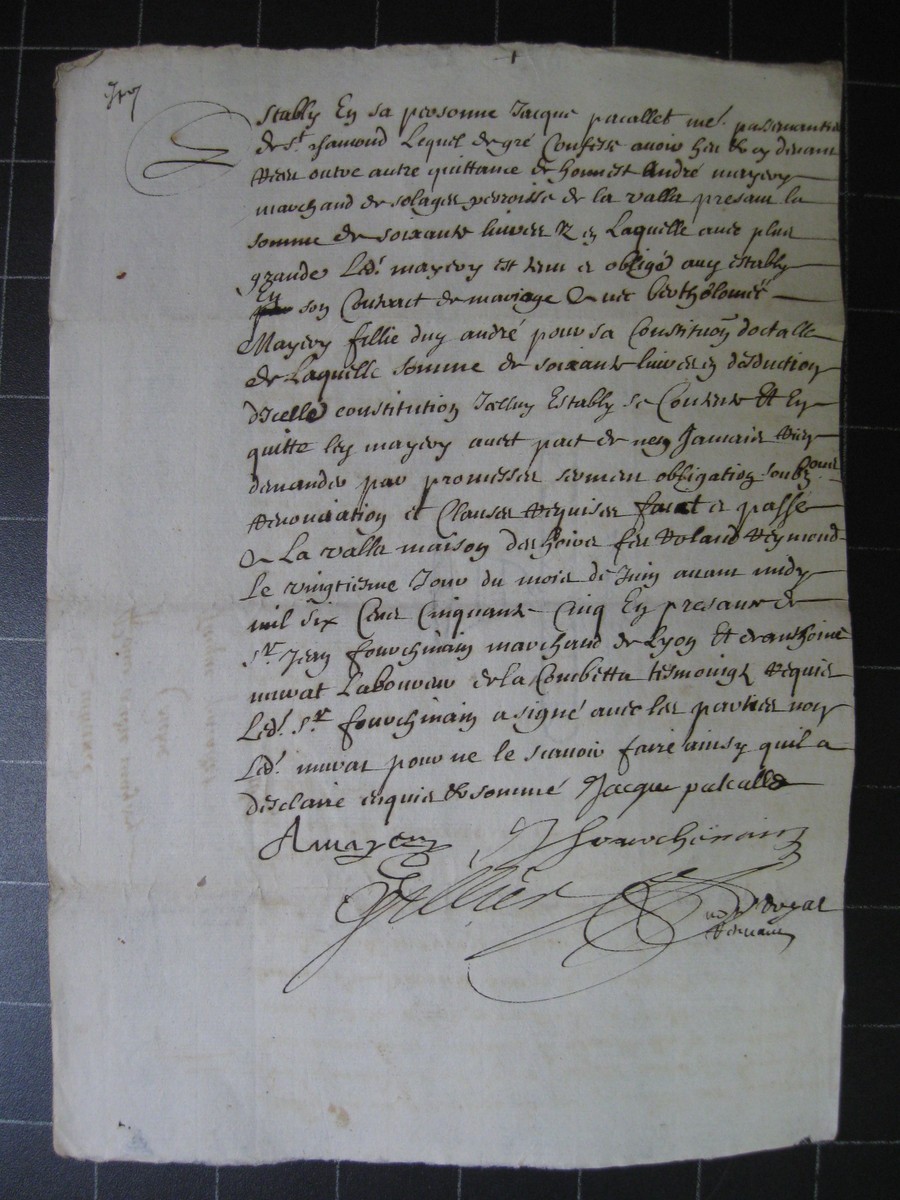 Estably En sa personne Jacque pacallet me. passemantier
de st. chamond Lequel de gré Confesse avoir heu & cy devant
receu outre autre quittance de honnest André mayery
marchand de solages perroisse de la valla presant la
somme de soixante livres & en Laquelle avec plus
grande Led. mayery est tenu et obligé auy estably
En
son Contract de mariage avec berthôlomië
Mayery fillie duy andré pour sa Constituon doctalle
de Laquelle somme de soixante livres en desduction
d'Icelle constitution Icelluy Estably se Contente Et En
quitte ley mayery avec pact de nen Jamais rien
demander par promesses serment obligation soubz
renonciation et Clauses requises faict et passé
a La valla maison des hoirs feu roland reymond
le vingtiesme Jour du mois de Juin avant midy
mil six Cens Cinquante Cinq En presance de
sr. Jean fourchinain marchand de Lyon Et de anthoine
murat Laboureur de la Combetta tesmoings requis
Led. sr. fourchinain a signé avec les parties non
Led. murat pour ne le scavoir faire ainsy quil a
desclairé enquis & sommé Jacque pascallet
A mayery J fourchenain
Tellier no.re royal